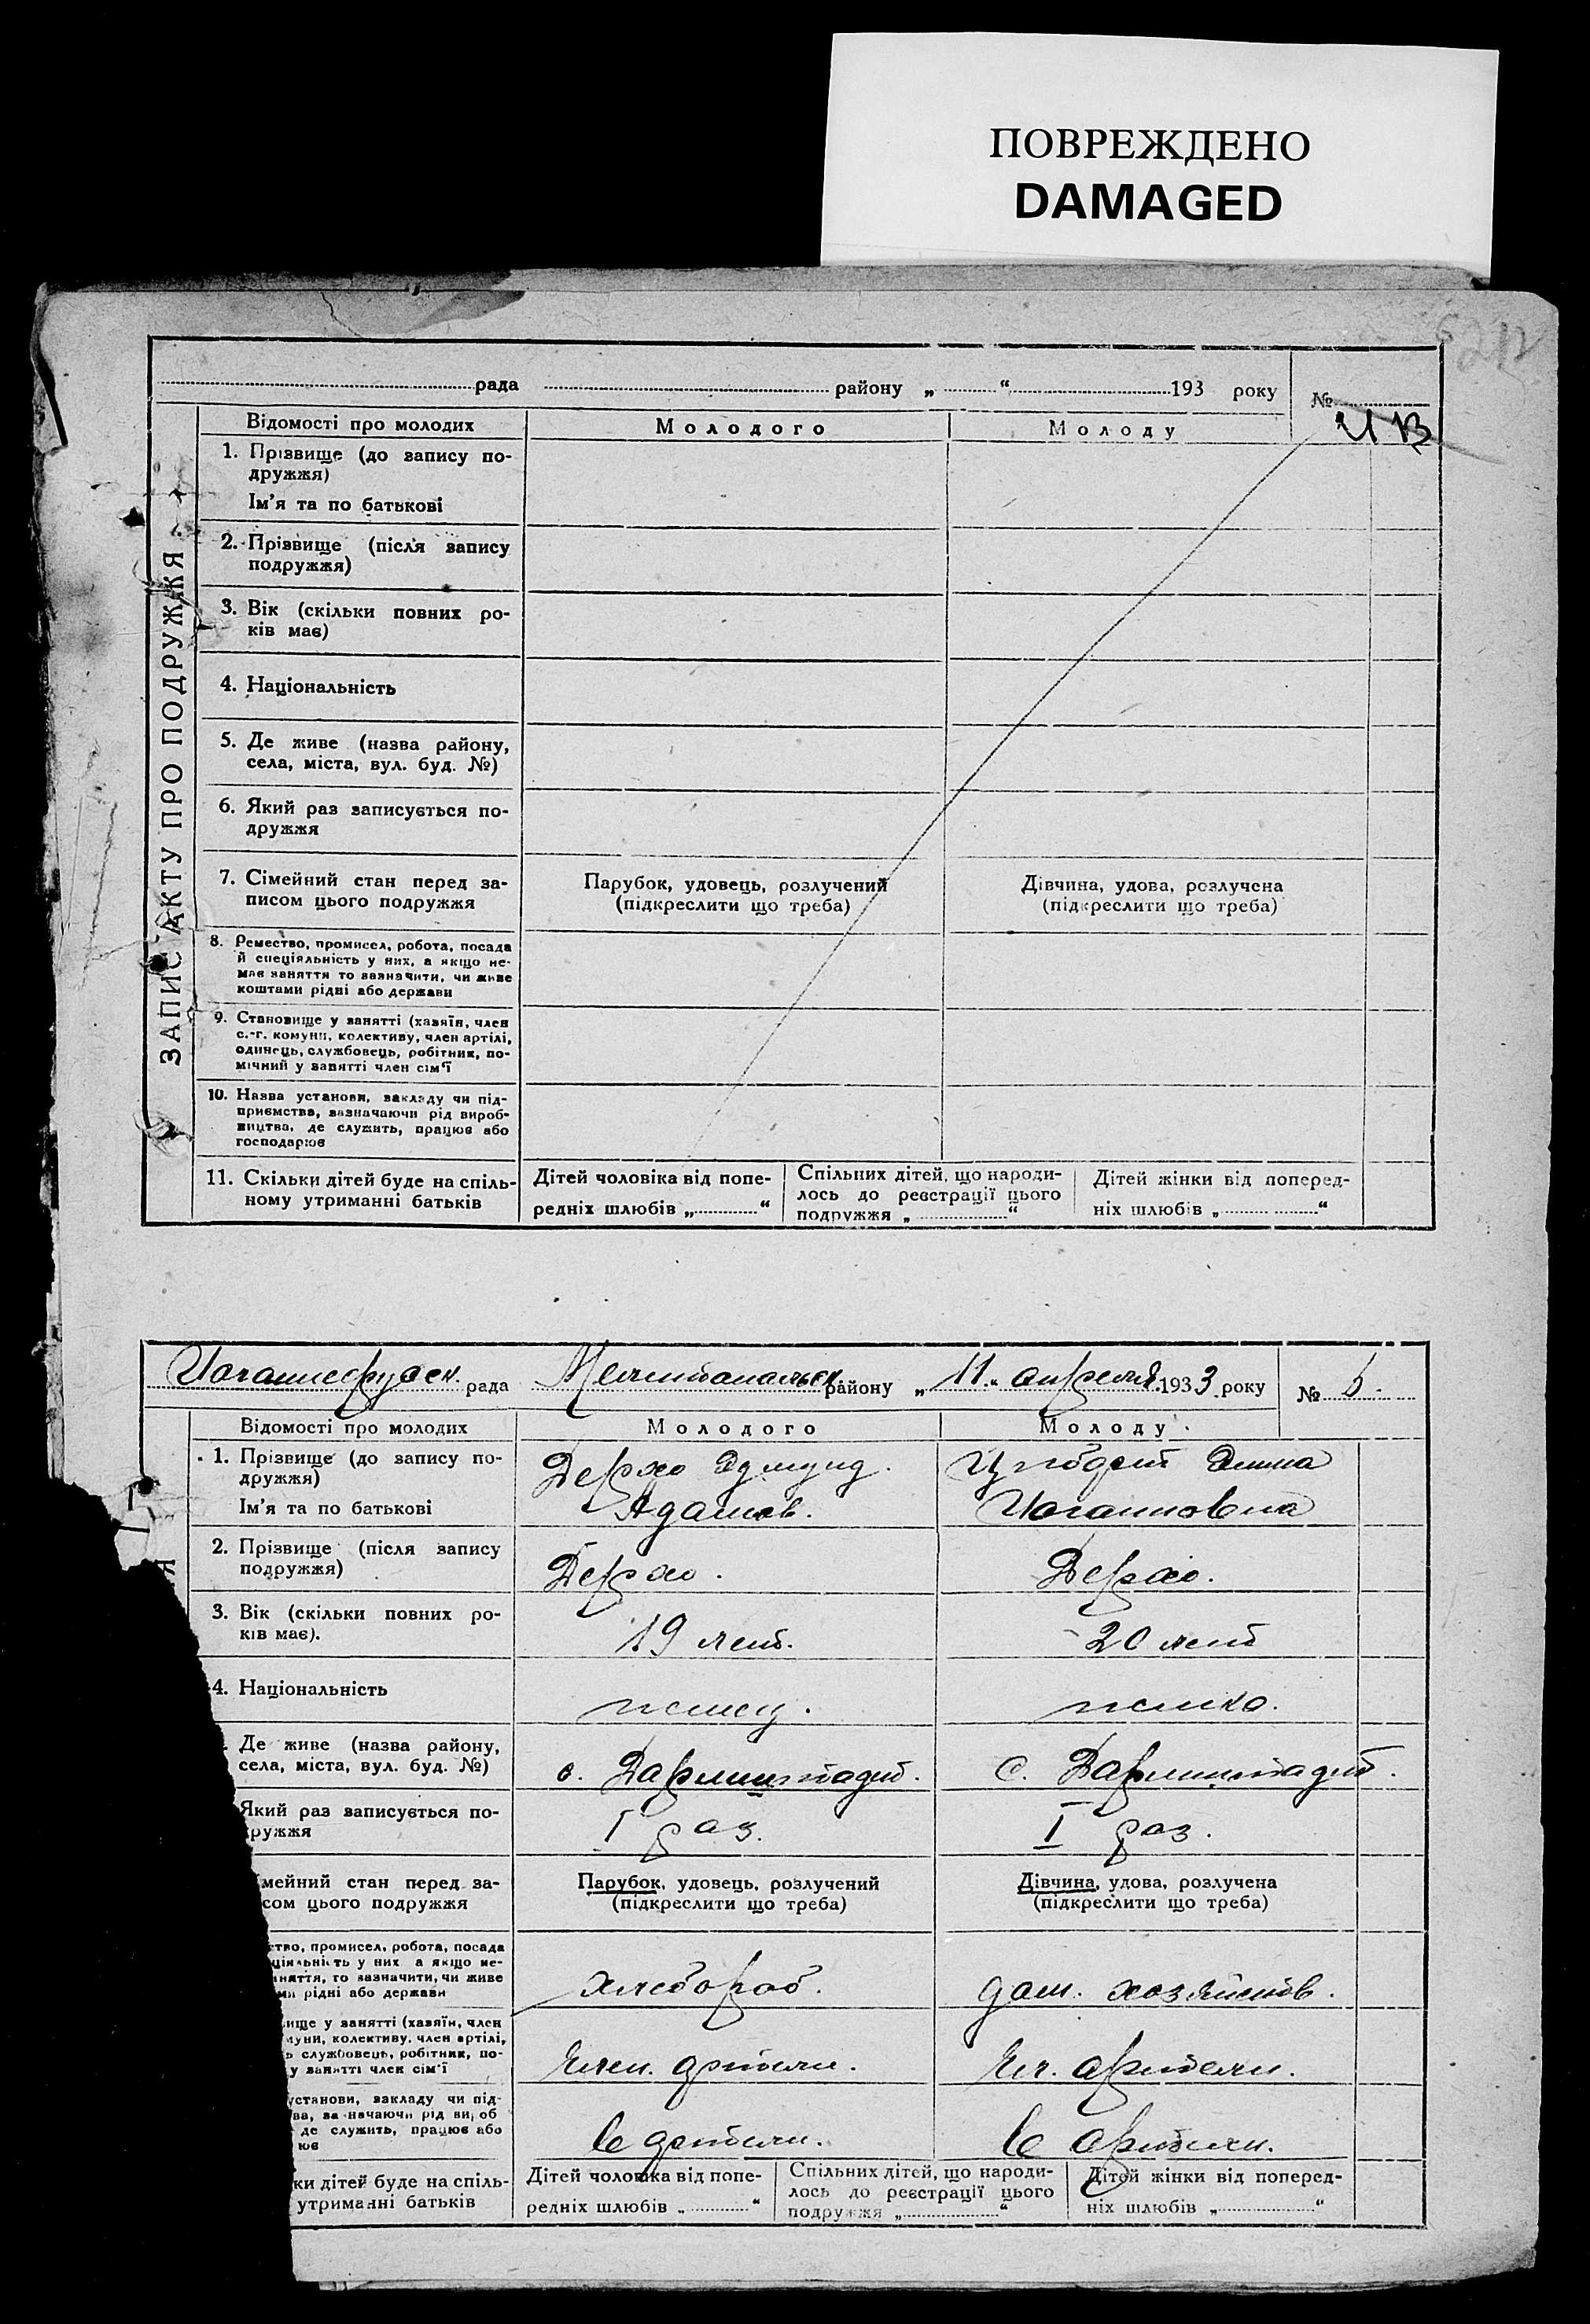 ПОВРЕЖДЕНО
DAMAGED
рада району „ “ 193 року №
Відомості про молодих Молодого Молоду
1. Прізвище (до запису по-
дружжя)
Ім'я та по батькові
2. Прізвище (після запису
подружжя)
3. Вік (скільки повних ро-
ків має)
4. Національність
5. Де живе (назва району,
села, міста, вул. буд. №)
6. Який раз записується по-
дружжя
7. Сімейний стан перед за-
писом цього подружжя
Парубок, удовець, розлучений
(підкреслити що треба)
Дівчина, удова, розлучена
(підкреслити що треба)
8. Ремество, промисел, робота, посада
й спеціяльність у них, а якщо не-
має заняття то зазначити, чи живе
коштами рідні або держави
9. Становище у занятті (хазяїн, член
с.-г. комуни, колективу, член артілі,
одинець, службовець, робітник, по-
мічний у занятті член сім'ї
10. Назва установи, закладу чи під-
приємства, зазначаючи рід вироб-
ництва, де служить, працює або
господарює
11. Скільки дітей буде на спіль-
ному утриманні батьків
Дітей чоловіка від попе-
редніх шлюбів „ “
Спільних дітей, що народи-
лось до реєстрації цього
подружжя „ “
Дітей жінки від поперед-
ніх шлюбів „ “
ЗАПИС АКТУ ПРО ПОДРУЖЖЯ
рада Мелитопальск. району „11“ апреля 1933 року № 5.
Відомості про молодих Молодого Молоду
1. Прізвище (до запису по-
дружжя)
Ім'я та по батькові
Эдмунд.
Адамов.
Эмма
Иогановна
2. Прізвище (після запису
подружжя)
3. Вік (скільки повних ро-
ків має).
19 лет. 20 лет
4. Національність
немец. немка.
Де живе (назва району,
села, міста, вул. буд. №)
с. Дармштадт. с. Дармштадт.
Який раз записується по-
ружжя
I раз. I раз.
мейний стан перед за-
сом цього подружжя
Парубок, удовець, розлучений
(підкреслити що треба)
Дівчина, удова, розлучена
(підкреслити що треба)
тво, промисел, робота, посада
ціяльність у них а якщо не-
няття, то зазначити, чи живе
ми рідні або держави
хлебороб. дом. хозяйств.
ище у занятті (хазяїн, член
муни, колективу, член артілі,
ь службовець, робітник, по-
у занятті член сім'ї
член. артели. чл. артели.
установи, закладу чи під-
ва, зазначаючи рід вироб
де служить, працює або
ює
в артели. в артели.
ки дітей буде на спіль-
утриманні батьків
Дітей чоловіка від попе-
редніх шлюбів „ “
Спільних дітей, що народи-
лось до реєстрації цього
подружжя „ “
Дітей жінки від поперед-
ніх шлюбів „ “